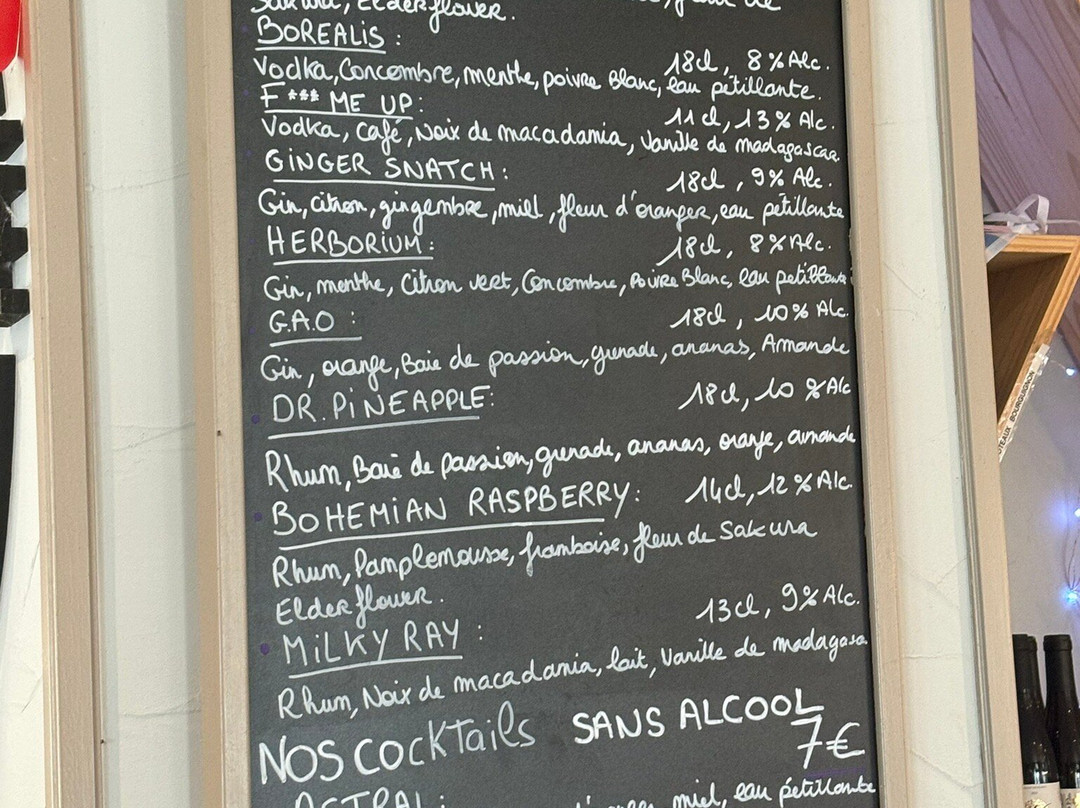 Sakura, Elderflower.
BOREALIS :
18cl, 8% Alc.
Vodka, Concombre, menthe, poivre Blanc, eau pétillante.
F*** ME UP:
11cl, 13% Alc.
Vodka, Café, Noix de macadamia, Vanille de madagascar
GINGER SNATCH :
18cl, 9% Alc.
Gin, citron, gingembre, miel, fleur d'oranger, eau pétillante
HERBORIUM :
18cl, 8% Alc.
Gin, menthe, Citron vert, Concombre, Poivre Blanc, eau petillante
G.A.O :
18cl, 10% Alc.
Gin, orange, Baie de passion, grenade, ananas, Amande
DR. PINEAPPLE:
18cl, 10 % Alc
Rhum, Baie de passion, grenade, ananas, orange, amande
BOHEMIAN RASPBERRY: 14cl, 12% Alc.
Rhum, Pamplemousse, framboise, fleur de Sakura
Elderflower.
MILKY RAY :
13cl, 9% Alc.
Rhum, Noix de macadamia, lait, Vanille de madagasa
NOS COCKTAILS SANS ALCOOL
7€
ASTRAL :
miel, eau pétillante